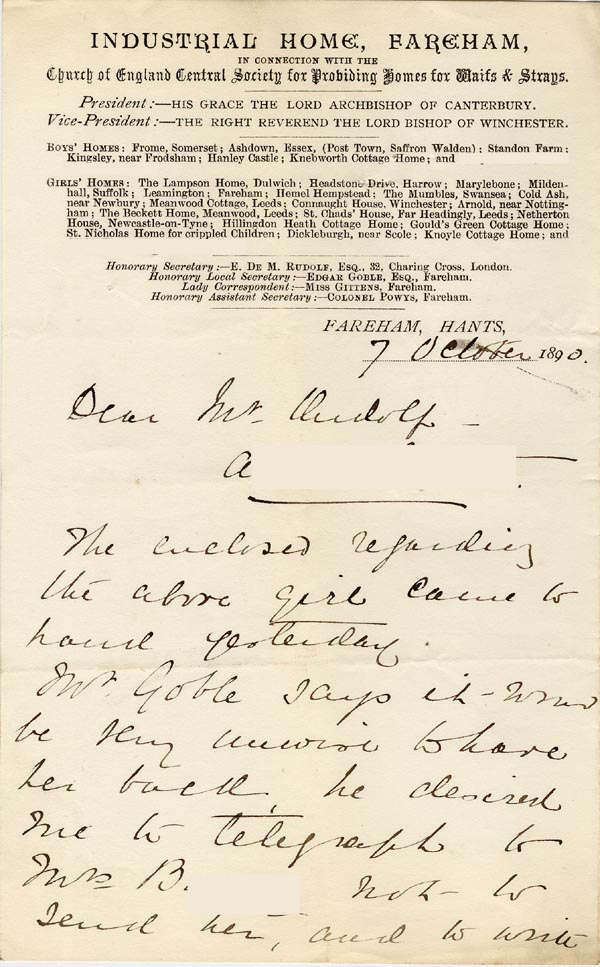 INDUSTRIAL HOME, FAREHAM,
IN CONNECTION WITH THE
Church of England Central Society for Probiding Homes for Waifs & Strays.
President:—HIS GRACE THE LORD ARCHBISHOP OF CANTERBURY.
Vice-President:—THE RIGHT REVEREND THE LORD BISHOP OF WINCHESTER.
BOYS' HOMES: Frome, Somerset; Ashdown, Essex, (Post Town, Saffron Walden); Standon Farm;
Kingsley, near Frodsham; Hanley Castle; Knebworth Cottage Home; and
GIRLS' HOMES: The Lampson Home, Dulwich; Headstone Drive, Harrow; Marylebone; Milden-
hall, Suffolk; Leamington; Fareham; Hemel Hempstead; The Mumbles, Swansea; Cold Ash,
near Newbury; Meanwood Cottage, Leeds; Connaught House, Winchester; Arnold, near Notting-
ham; The Beckett Home, Meanwood, Leeds; St. Chads' House, Far Headingly, Leeds; Netherton
House, Newcastle-on-Tyne; Hillingdon Heath Cottage Home; Gould's Green Cottage Home;
St. Nicholas Home for crippled Children; Dickleburgh, near Scole; Knoyle Cottage Home; and
Honorary Secretary:—E. DE M. RUDOLF, ESQ., 32, Charing Cross, London.
Honorary Local Secretary:—EDGAR GOBLE, ESQ., Fareham.
Lady Correspondent:—MISS GITTENS, Fareham.
Honorary Assistant Secretary:—COLONEL POWYS, Fareham.
FAREHAM, HANTS,
7 October 1890.
Dear Mr. Rudolf —
A
The enclosed regarding
the above girl came to
hand yesterday.
Mr. Goble says it would
be very unwise to have
her back, he desired
me to telegraph to
Mrs B. not to
send her, and to write